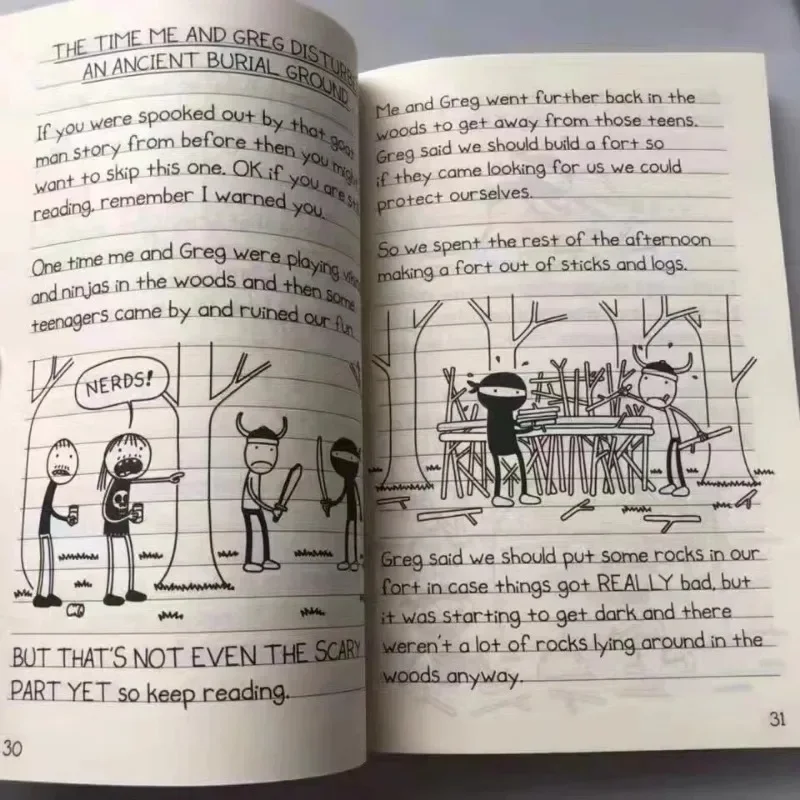 THE TIME ME AND GREG DISTURBE
AN ANCIENT BURIAL GROUND
If you were spooked out by that goat
man story from before then you might
want to skip this one. OK if you are st
reading, remember I warned you.
One time me and Greg were playing
and ninjas in the woods and then some
teenagers came by and ruined our fun.
NERDS!
BUT THAT'S NOT EVEN THE SCARY
PART YET so keep reading.
30
Me and Greg went further back in the
woods to get away from those teens.
Greg said we should build a fort so
if they came looking for us we could
protect ourselves.
So we spent the rest of the afternoon
making a fort out of sticks and logs.
Greg said we should put some rocks in our
fort in case things got REALLY bad, but
it was starting to get dark and there
weren't a lot of rocks lying around in the
woods anyway.
31